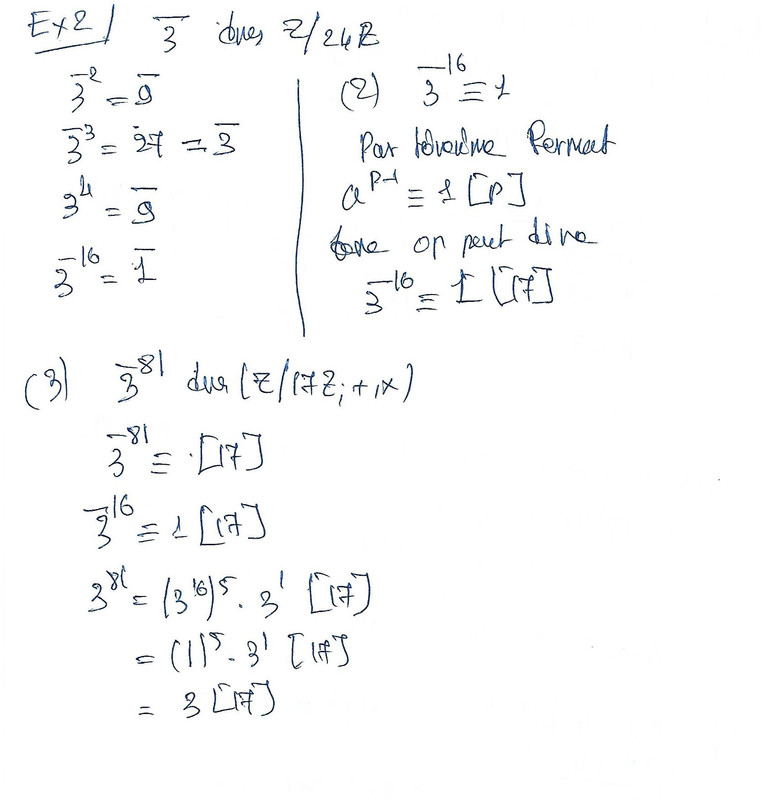 Ex2/ 3̅ dans Z/24Z
3̅² = 9̅
3̅³ = 27 = 3̅
3⁴ = 9̅
3̅¹⁶ = 1̅
(2) 3̅¹⁶ ≡ 1
Par Fermat
aᵖ⁻¹ ≡ 1 [p]
on peut dire
3̅¹⁶ ≡ 1 [17]
(3) 3̅⁸¹ dans (Z/17Z; +, ×)
3̅⁸¹ ≡ · [17]
3̅¹⁶ ≡ 1 [17]
3⁸¹ = (3¹⁶)⁵ · 3¹ [17]
= (1)⁵ · 3¹ [17]
= 3 [17]